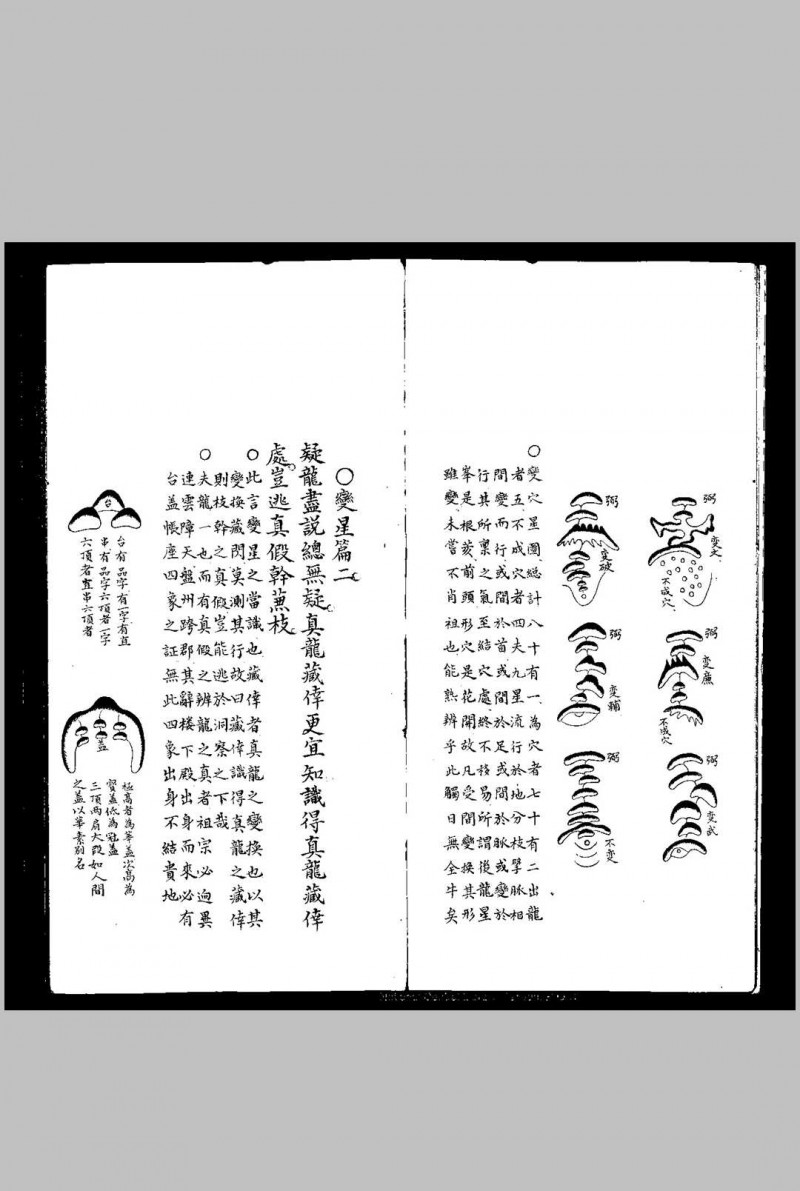 弼
变文
不成穴
弼
变廉
不成穴
弼
变武
弼
变破
弼
变輔
弼
不变
○變穴星圖総計八十有一為穴者七十有二出龍
者五不成穴者四夫九星流行於地分枝擘脈相
間變而行或間於首或間於足或間於脈或變於
行其所禀之氣至結穴處終不移易所謂後龍星
峯是根荄前頭形穴是花開故凡受間變換其形
雖變未嘗不肖祖也能熟辨乎此觸日無全牛矣
○變星篇二
疑龍盡説總無疑真龍藏倖更宜知識得真龍藏倖
處豈逃真假幹蒹枝
○此言變星之當識也藏倖者真龍之變換也以其
變換藏閃莫測其行故曰藏倖識得真龍之藏倖
則枝幹之真假豈能逃於洞察之下哉
○夫龍一也而有真假之辨龍之真者祖宗必逈異
連雲障天盤州跨郡其辭楼下殿出身而來必有
台盖帳座四象之証無此四象出身不結貴地
台
台有品字有一字有直
串有品字六頂者一字
六頂者直串六頂者
盖
極高者為華盖次高為
寳盖低為冠盖
三頂兩肩大段如人間
之盖以華素别名